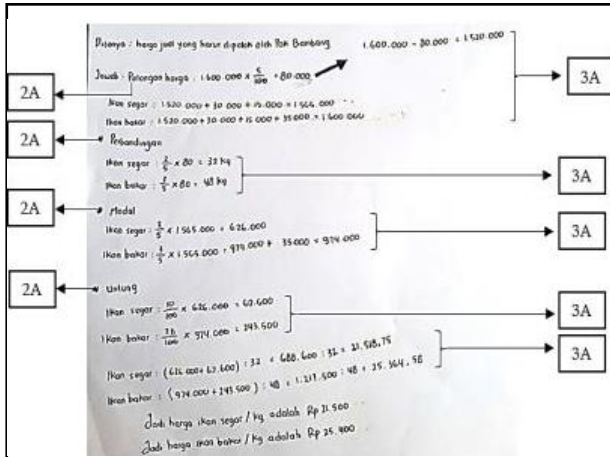 Ditanya : harga jual yang harus dipatok oleh Pak Bambang
1.600.000 - 80.000 = 1.520.000
Jawab : Potongan harga : 1.600.000 x 5/100 = 80.000
2A
3A
Ikan segar : 1.520.000 + 30.000 + 15.000 = 1.565.000
Ikan bakar : 1.520.000 + 30.000 + 15.000 + 35.000 = 1.600.000
2A
Perbandingan
Ikan segar : 2/5 x 80 = 32 kg
Ikan bakar : 3/5 x 80 = 48 kg
3A
2A
Modal
Ikan segar : 2/5 x 1.565.000 = 626.000
Ikan bakar : 3/5 x 1.565.000 = 939.000 + 35.000 = 974.000
3A
2A
Untung
Ikan segar : 10/100 x 626.000 = 62.600
Ikan bakar : 25/100 x 974.000 = 243.500
3A
Ikan segar : (626.000 + 62.600) : 32 = 688.600 : 32 = 21.518,75
Ikan bakar : (974.000 + 243.500) : 48 = 1.217.500 : 48 = 25.364,58
3A
Jadi harga ikan segar / kg adalah Rp 21.500
Jadi harga ikan bakar / kg adalah Rp 25.400